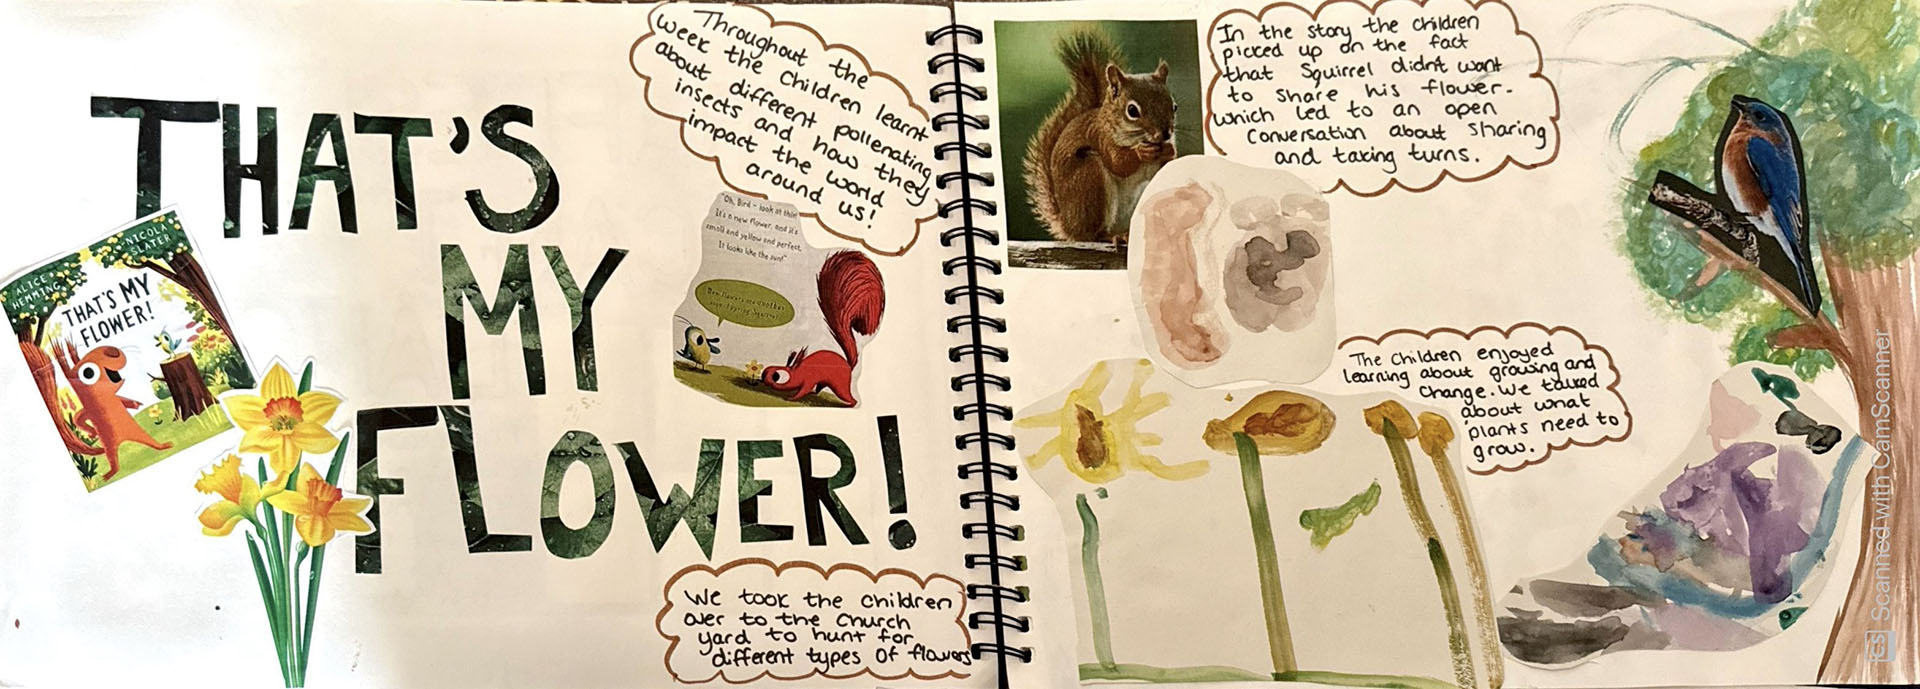 THAT'S
MY
FLOWER!
ALICE
HEMMING
NICOLA
SLATER
THAT'S MY
FLOWER!
Throughout the
week the children learnt
about different pollenating
insects and how they
impact the world
around us!
"Oh, Bird - look at this!
It's a new flower, and it's
small and yellow and perfect.
It looks like the sun!"
New flowers are another
sign of spring, Squirrel!
We took the children
over to the church
yard to hunt for
different types of flowers
In the story the children
picked up on the fact
that Squirrel didn't want
to share his flower.
which led to an open
conversation about sharing
and taking turns.
The children enjoyed
learning about growing and
change. We talked
about what
plants need to
grow.
CS Scanned with CamScanner